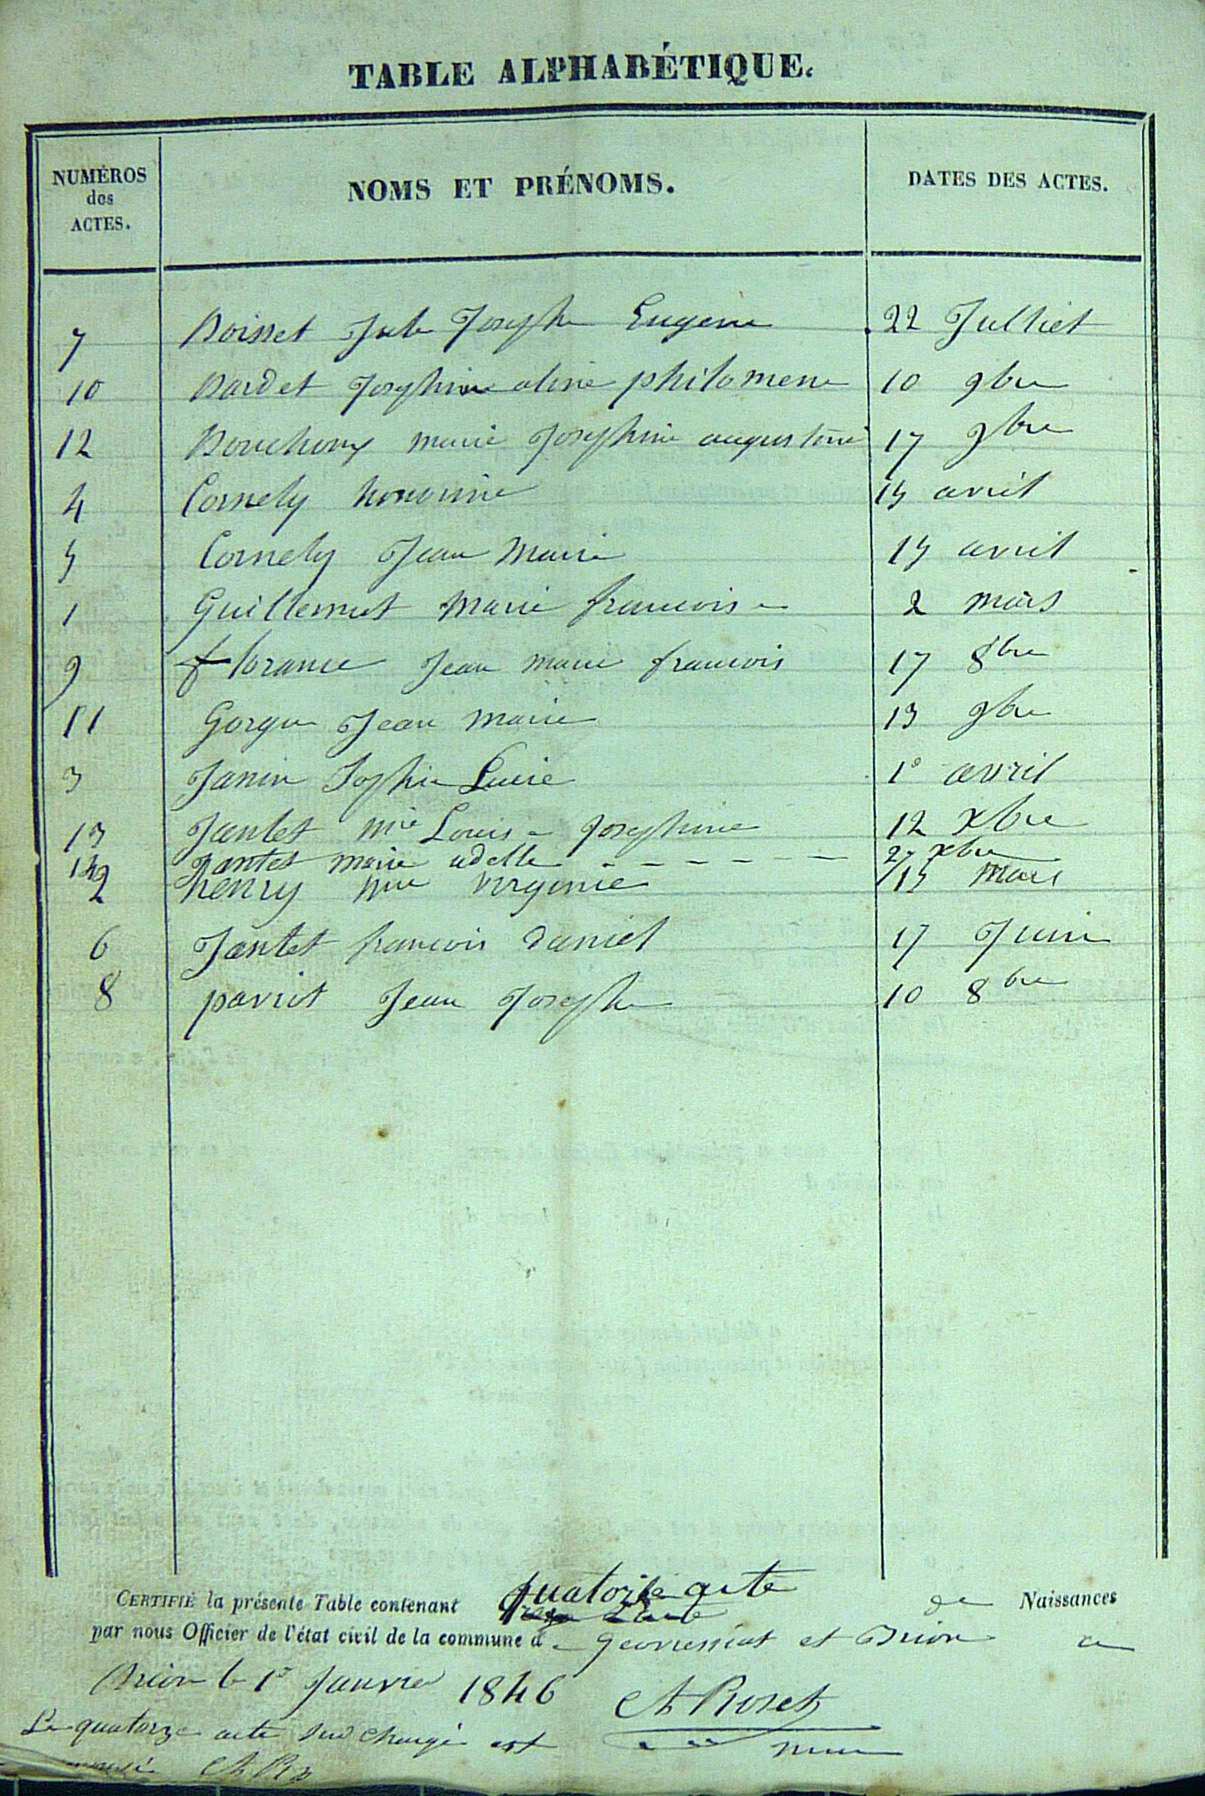 TABLE ALPHABÉTIQUE.
NUMÉROS des ACTES. NOMS ET PRÉNOMS. DATES DES ACTES.
7 Boisset Jule Joseph Eugene 22 Julliet
10 Bardet Josephine aline philomene 10 9bre
12 Bouchoux marie Josephine augustine 17 9bre
4 Cornely honorine 15 avril
5 Cornely Jean Marie 15 avril
1 Guillermet Marie francoise 2 mars
9 florance Jean marie francois 17 8bre
11 Gorgu Jean Marie 13 9bre
3 Janin Sophie Lucie 1° avril
13 Jantet mie Louise Josephine 12 xbre
14 Jantet marie adelle - - - - - 27 xbre
2 henry mie virginie 15 mars
6 Jantet francois daniel 17 Juin
8 pariot Jean Joseph 10 8bre
CERTIFIÉ la présente Table contenant quatorze acte de Naissances
par nous Officier de l'état civil de la commune de Geovressiat et Brion a
Brion le 1er Janvier 1846
Ch Roset
Le quatorze acte surchargé est
Ch R